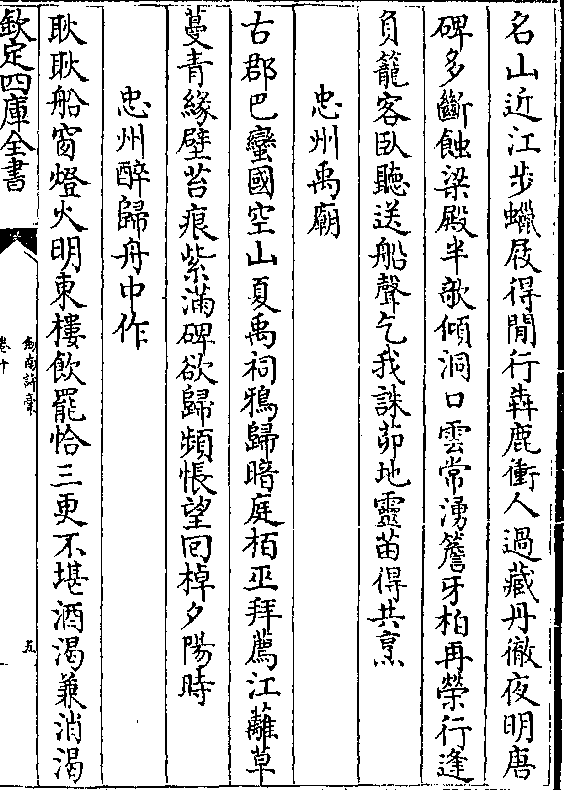 名山近江步蠟屐得閒行犇鹿衝人過藏丹徹夜明唐
碑多斷蝕梁殿半欹傾洞口雲常湧簷牙柏再榮行逢
負籠客臥聽送船聲乞我誅茆地靈苗得共烹
忠州禹廟
古郡巴蠻國空山夏禹祠鴉歸暗庭柏巫拜薦江蘺草
蔓青緣壁苔痕紫滿碑欲歸頻悵望回棹夕陽時
忠州醉歸舟中作
耿耿船窗燈火明東樓飲罷恰三更不堪酒渴兼消渴
欽定四庫全書
劍南詩稾
卷十
五